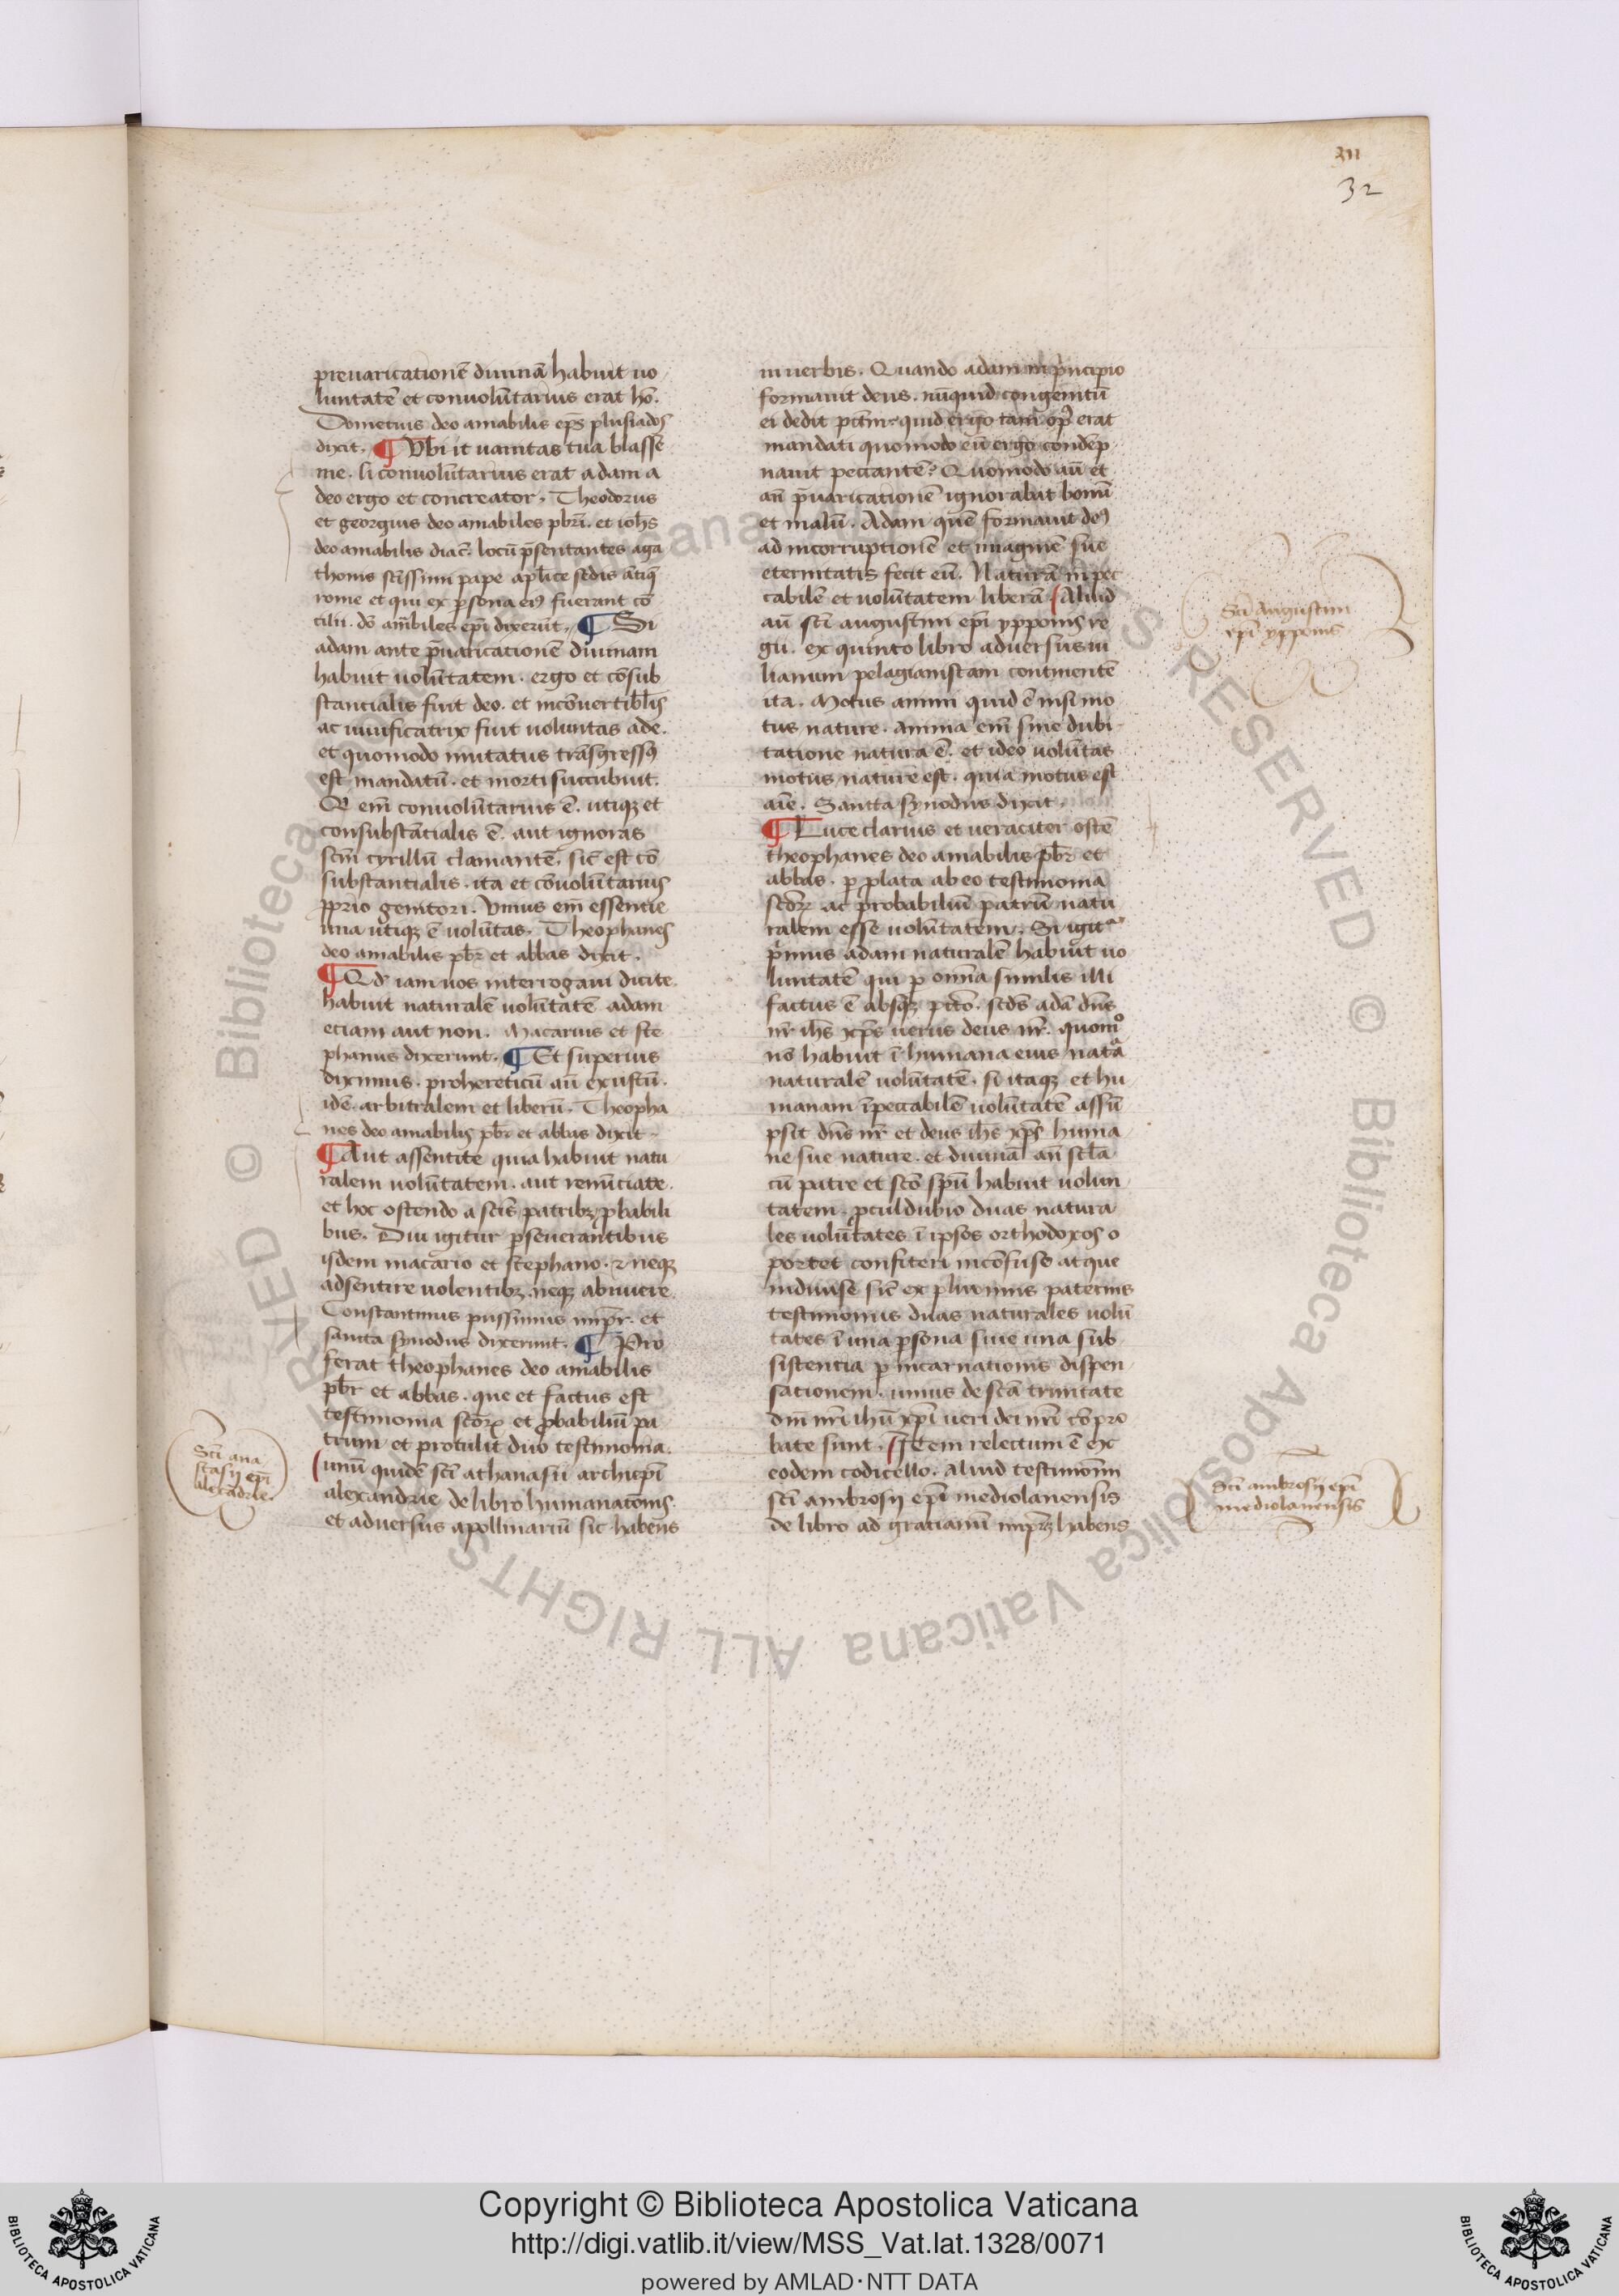 xxxii
32
preuaricationē diuinā habuit uo
luntatē et conuolūtarius erat hō.
Dometius deo amabilis ep̄s plusiados
dixit. ¶ Vbi it uanitas tua blasfe
me. si conuolūtarius erat adam a
deo ergo et concreator. Theodorus
et georgius deo amabiles pb̄ri. et ioh̄s
deo amabilis diac̄. locū p̄sentantes aga
thonis sc̄issimi pape apl̄ice sedis ātiq̄
rome et qui ex ꝑsona eiꝰ fuerant cō
cilii. dō am̄biles ep̄i dixerūt. ¶ Si
adam ante p̄uaricationē diuinam
habuit uolūtatem. ergo et cōsub
stancialis fuit deo. et incōuertibl̄is
ac uiuificatrix fuit uoluntas ade.
et quomodo mutatus trāsgressꝰ
est mandatū. et morti succubuit.
Q em̄ conuolūtarius ē. utiqꝫ et
consubstācialis ē. aut ignoras
scm̄ cyrillū clamantē. sic̄ est cō
substantialis. ita et cōuolūtarius
ꝓprio genitori. Vnius em̄ essentie
una utiqꝫ ē uolūtas. Theophanes
deo amabilis pb̄r et abbas dixit.
¶ Qd̄ iam uos interrogaui dicite
habuit naturalē uolūtatē adam
etiam aut non. Macarius et ste
phanus dixerunt. ¶ Et superius
diximus. prohereticū aū existū.
idē. arbitralem et liberū. Theopha
nes deo amabilis pb̄r et abbas dixit.
¶ Aut assentite quia habuit natu
ralem uolūtatem. aut renūciate.
et hoc ostendo a sc̄is patribꝫ ꝓbabili
bus. Diu igitur ꝑseuerantibus
iisdem macario et stephano. ⁊ neqꝫ
adsentire uolentibꝫ. neqꝫ abnuere.
Constantinus piissimus imꝑr. et
sancta synodus dixerunt. ¶ Pro
ferat theophanes deo amabilis
pb̄r et abbas. que et factus est
testimonia sc̄oꝝ et ꝓbabiliū pa
trum et protulit duo testimonia.
unū quidē sc̄i athanasii archiep̄i
alexandrie de libro humanatōnis
et aduersus apollinariū sic habens
Sc̄i ana
stasij ep̄i
alexādrie.
in uerbis. Quando adam in p̄ncipio
formauit deus. nūquid congenitū
ei dedit pc̄tm̄. quid ergo tam̄ opꝰ erat
mandati quomodo eū ergo condēp
nauit peccantē? Quomodo aū et
an̄ p̄uaricationē ignorabat bonū
et malū. Adam quē formauit deꝰ
ad incorruptionē et imaginē sue
eternitatis fecit eū. Naturā īpec
cabilē et uolūtatem liberā. Aliud
aū sc̄i augustini ep̄i ypponis re
gii. ex quinto libro aduersus iu
lianum pelagianistam continentē
ita. Motus animi quid ē nisi mo
tus nature. Anima em̄ sine dubi
tatione natura ē. et ideo uolūtas
motus nature est. quia motus est
aīe. Sancta synodus dixit.
¶ Luce clarius et ueraciter ostē
theophanes deo amabilis pb̄r et
abbas. ꝑ plata ab eo testimonia
sc̄oꝝ ac probabiliū patrū natu
ralem esse uolūtatem. Si igitᵘʳ
p̄mus adam naturalē habuit uo
luntatē qui ꝑ omīa similis illi
factus ē absqꝫ pc̄to. sc̄ds adā dn̄s
nr̄ ih̄s xp̄s uerus deus nr̄. quomᵒ
nō habuit ī humana eius natᵃ
naturalē uolūtatē. si itaqꝫ et hu
manam īpeccabilē uolūtatē assū
psit dn̄s nr̄ et deus ih̄s xp̄s huma
ne sue nature. et diuinā an̄ sc̄la
cū patre et sc̄o spū habuit uolun
tatem. ꝓculdubio duas natura
les uolūtates ī ipsos orthodoxos o
portet confiteri incōfuse atque
indiuise sic̄ ex plurimis paternis
testimoniis duas naturales uolū
tates ī una ꝑsona siue una sub
sistentia ꝑ incarnationis dispen
sationem. unius de scā trinitate
dn̄i nr̄i ih̄u xp̄i ueri dei nr̄i cōpro
bate sunt. Item relectum ē ex
eodem codicello. Aliud testimoniū
sc̄i ambrosij ep̄i mediolanensis
de libro ad gratianū imꝑꝫ habens
Sc̄i Augustini
ep̄i ypponis
Sc̄i ambrosij ep̄i
mediolanensis
Copyright © Biblioteca Apostolica Vaticana
http://digi.vatlib.it/view/MSS_Vat.lat.1328/0071
powered by AMLAD·NTT DATA
BIBLIOTECA APOSTOLICA VATICANA
BIBLIOTECA APOSTOLICA VATICANA
© Biblioteca Apostolica Vaticana ALL RIGHTS RESERVED © Biblioteca Apostolica Vaticana ALL RIGHTS RESERVED